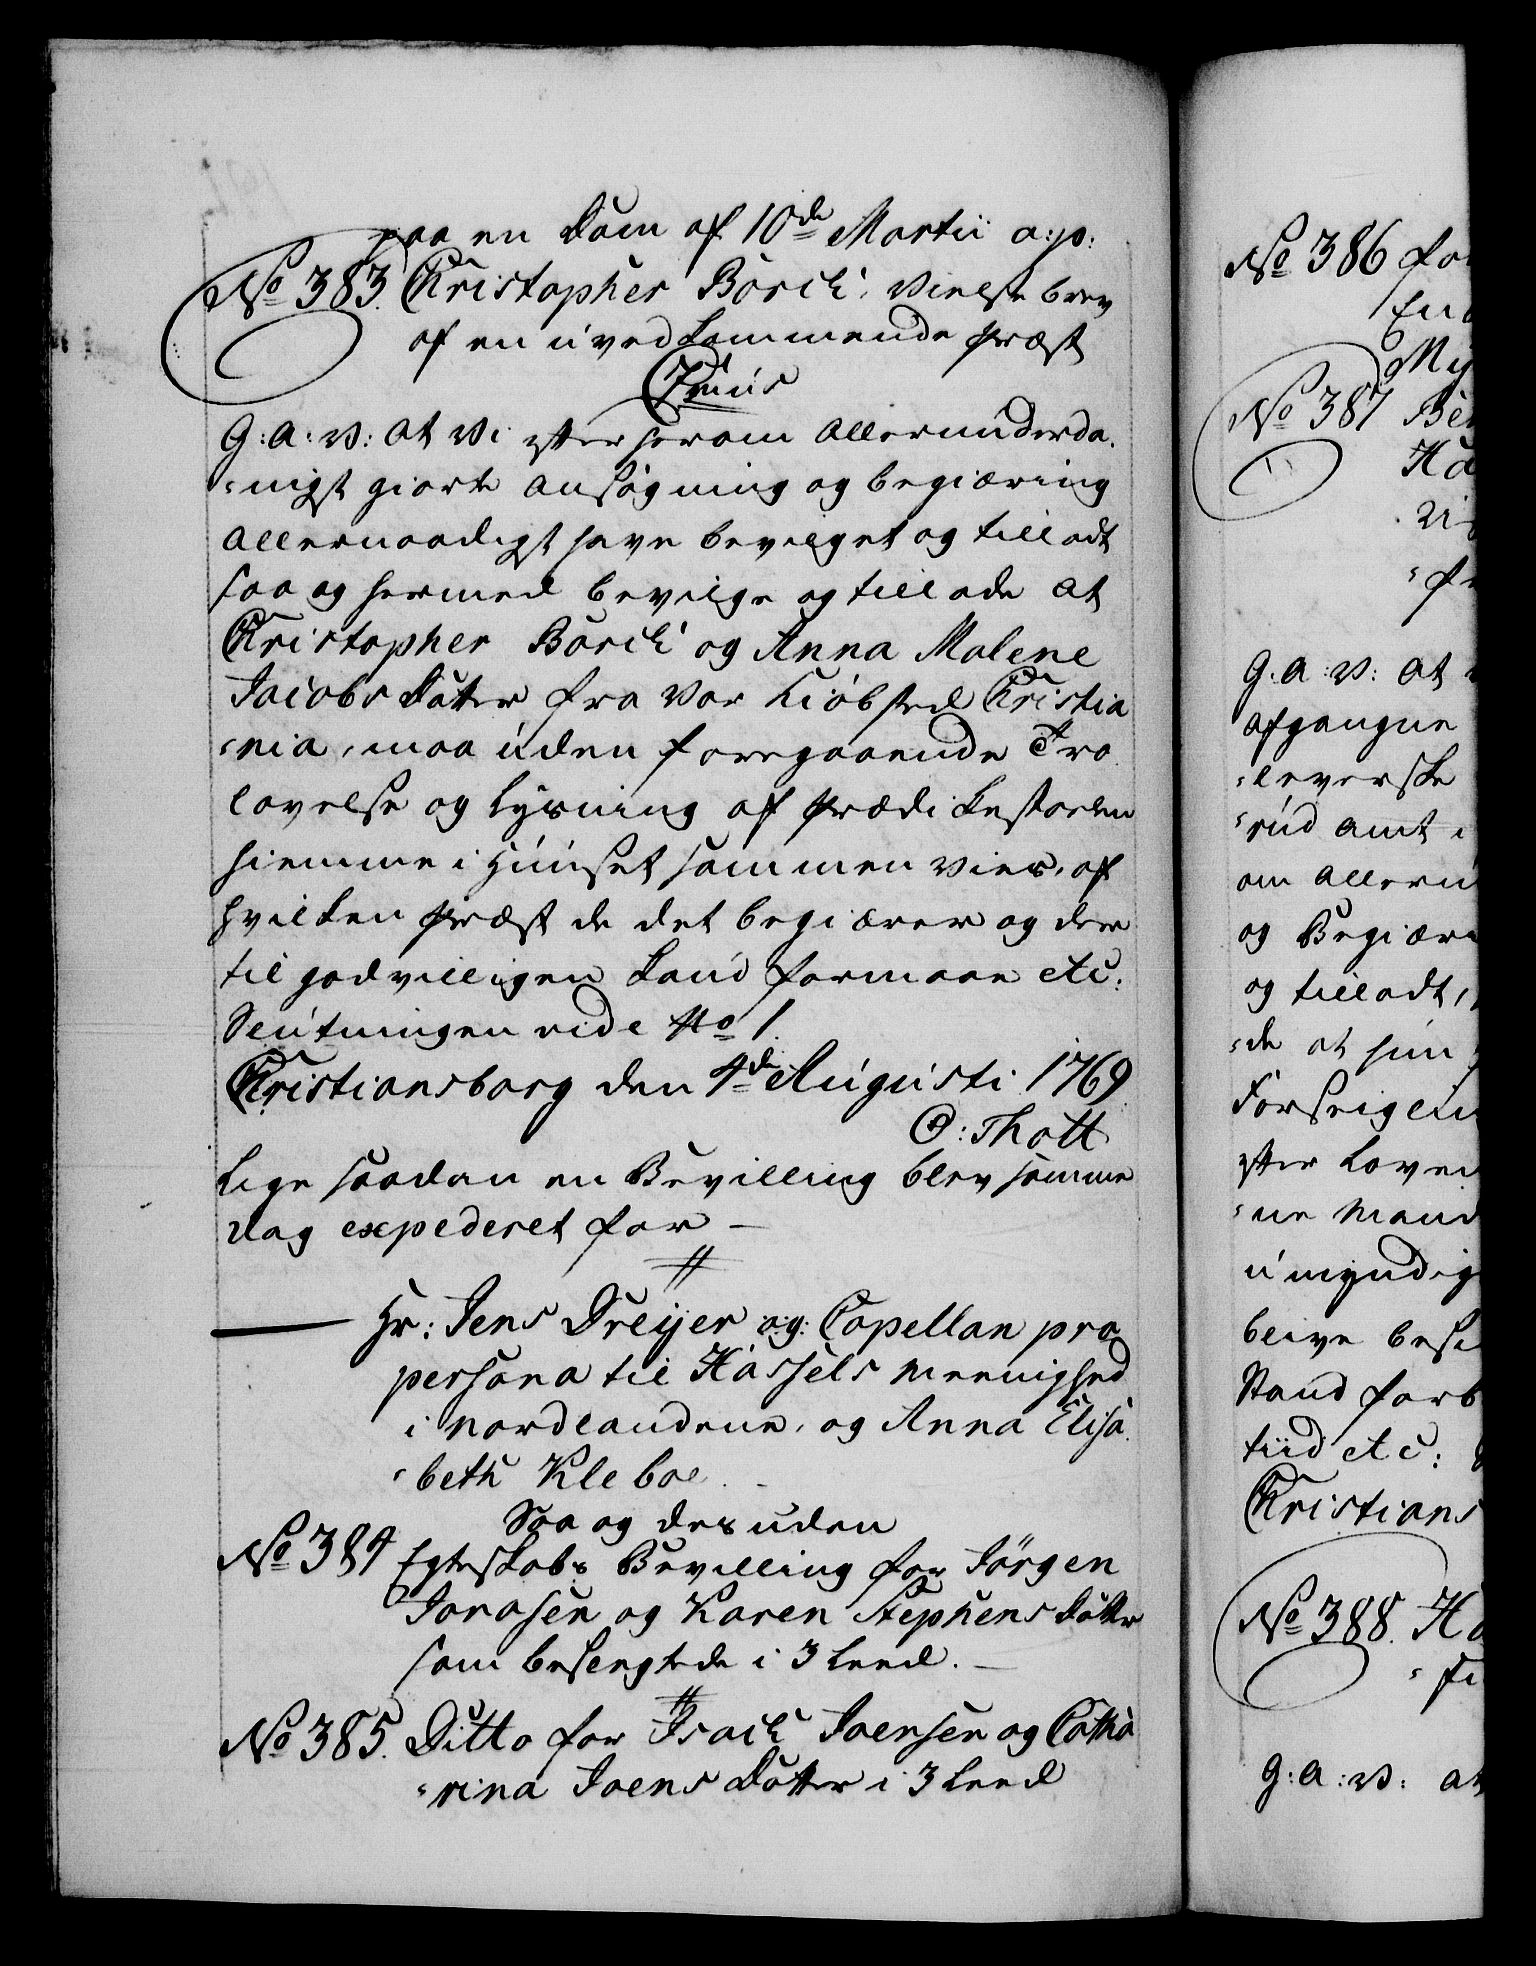 paa en Dom af 10de Martii a:p:
No 383. Christopher Borch, Vielse brev
af en uvedkommende Præst
C7mus
G: A: V: at Vi efter herom allerunderda
-nigst giorte Ansøgning og begiæring
allernaadigst have bevilget og tilladt
saa og hermed bevilge og tillade at
Christopher Borch og Anna Malene
Jacobs Datter fra Vor Kiøbsted Christia
-nia, maa uden foregaaende Tro
lovelse og Lysning af Prædikestolen
hiemme i Huuset sammen vies, af
hvilken Præst de det begiærer og der
til godvilligen Kand formaae etc:
Slutningen vide No 1.
Christiansborg den 4de Augusti 1769
O: Thott
Lige saadan en Bevilling blev samme
Dag expederet for —
Hr: Jens Dreyer og: Capellan pro
persona til Hassels Meenighed
i Nordlandene, og Anna Elisa
-beth Kleboe.
Saa og desuden
No 384 Egteskabs Bevilling for Jørgen
Jorasen og Karen Stephens Datter
som beslegtede i 3 Leed. —
No 385. Ditto for Isach Joensen og Catha
-rina Joens Datter i 3 Leed
No 386 for
En
My
No 387 Be
Ha
G: A: V: at
afgangne
-leverske
-rud Amt i
om alleru
og Begiær
og tilladt,
-de at hun
Forseigeli
efter Loven
-ne Mand
umyndig
blive besi
Stand forb
tiid etc:
Christians
No 388. Ha
G: A: V: at